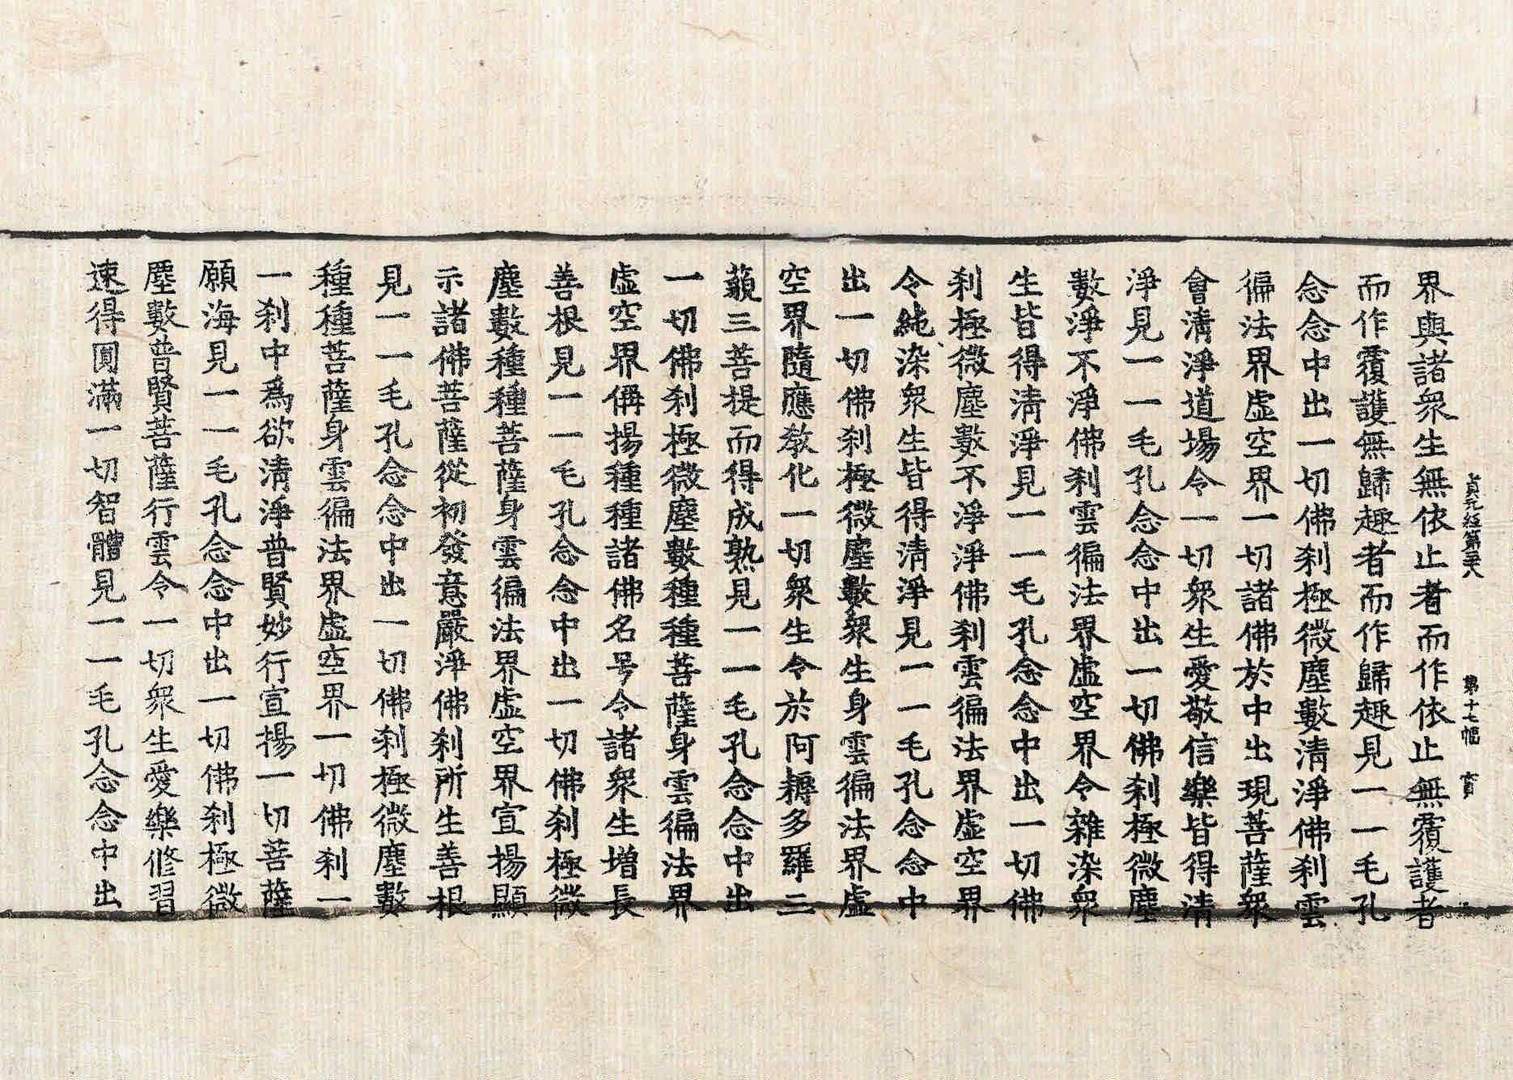 貞元經第三八　第十七幅　實
界與諸衆生無依止者而作依止無覆護者
而作覆護無歸趣者而作歸趣見一一毛孔
念念中出一切佛刹極微塵數清淨佛刹雲
徧法界虛空界一切諸佛於中出現菩薩衆
會清淨道場令一切衆生愛敬信樂皆得清
淨見一一毛孔念念中出一切佛刹極微塵
數淨不淨佛刹雲徧法界虛空界令雜染衆
生皆得清淨見一一毛孔念念中出一切佛
刹極微塵數不淨淨佛刹雲徧法界虛空界
令純染衆生皆得清淨見一一毛孔念念中
出一切佛刹極微塵數衆生身雲徧法界虛
空界隨應教化一切衆生令於阿耨多羅三
藐三菩提而得成熟見一一毛孔念念中出
一切佛刹極微塵數種種菩薩身雲徧法界
虛空界偁揚種種諸佛名号令諸衆生增長
善根見一一毛孔念念中出一切佛刹極微
塵數種種菩薩身雲徧法界虛空界宣揚顯
示諸佛菩薩從初發意嚴淨佛刹所生善根
見一一毛孔念念中出一切佛刹極微塵數
種種菩薩身雲徧法界虛空界一切佛刹一
一刹中爲欲清淨普賢妙行宣揚一切菩薩
願海見一一毛孔念念中出一切佛刹極微
塵數普賢菩薩行雲令一切衆生愛樂修習
速得圓滿一切智體見一一毛孔念念中出